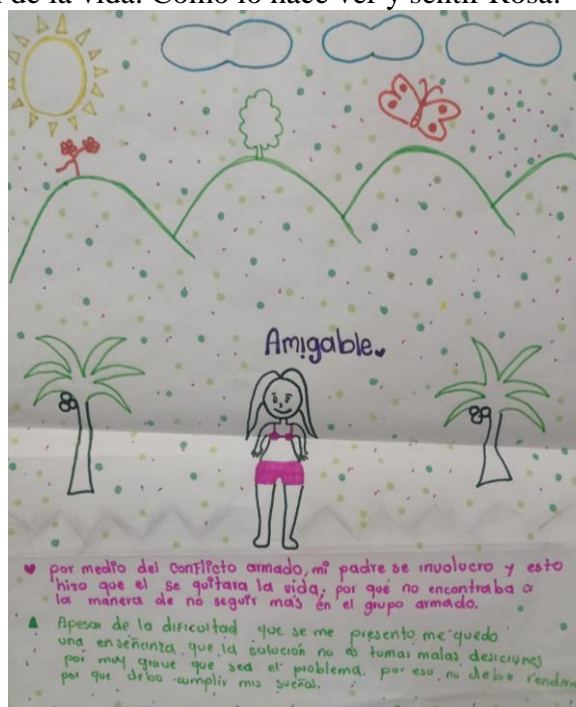 de la vida. Como lo hace ver y sentir Rosa.
Amigable
por medio del conflicto armado, mi padre se involucro y esto
hizo que el se quitara la vida, por que no encontraba
la manera de no seguir mas en el grupo armado.
Apesar de la dificultad que se me presento me quedo
una enseñanza, que la solución no es tomar malas desiciones
por muy grave que sea el problema. por eso no debo rendirme
por que debo cumplir mis sueños.